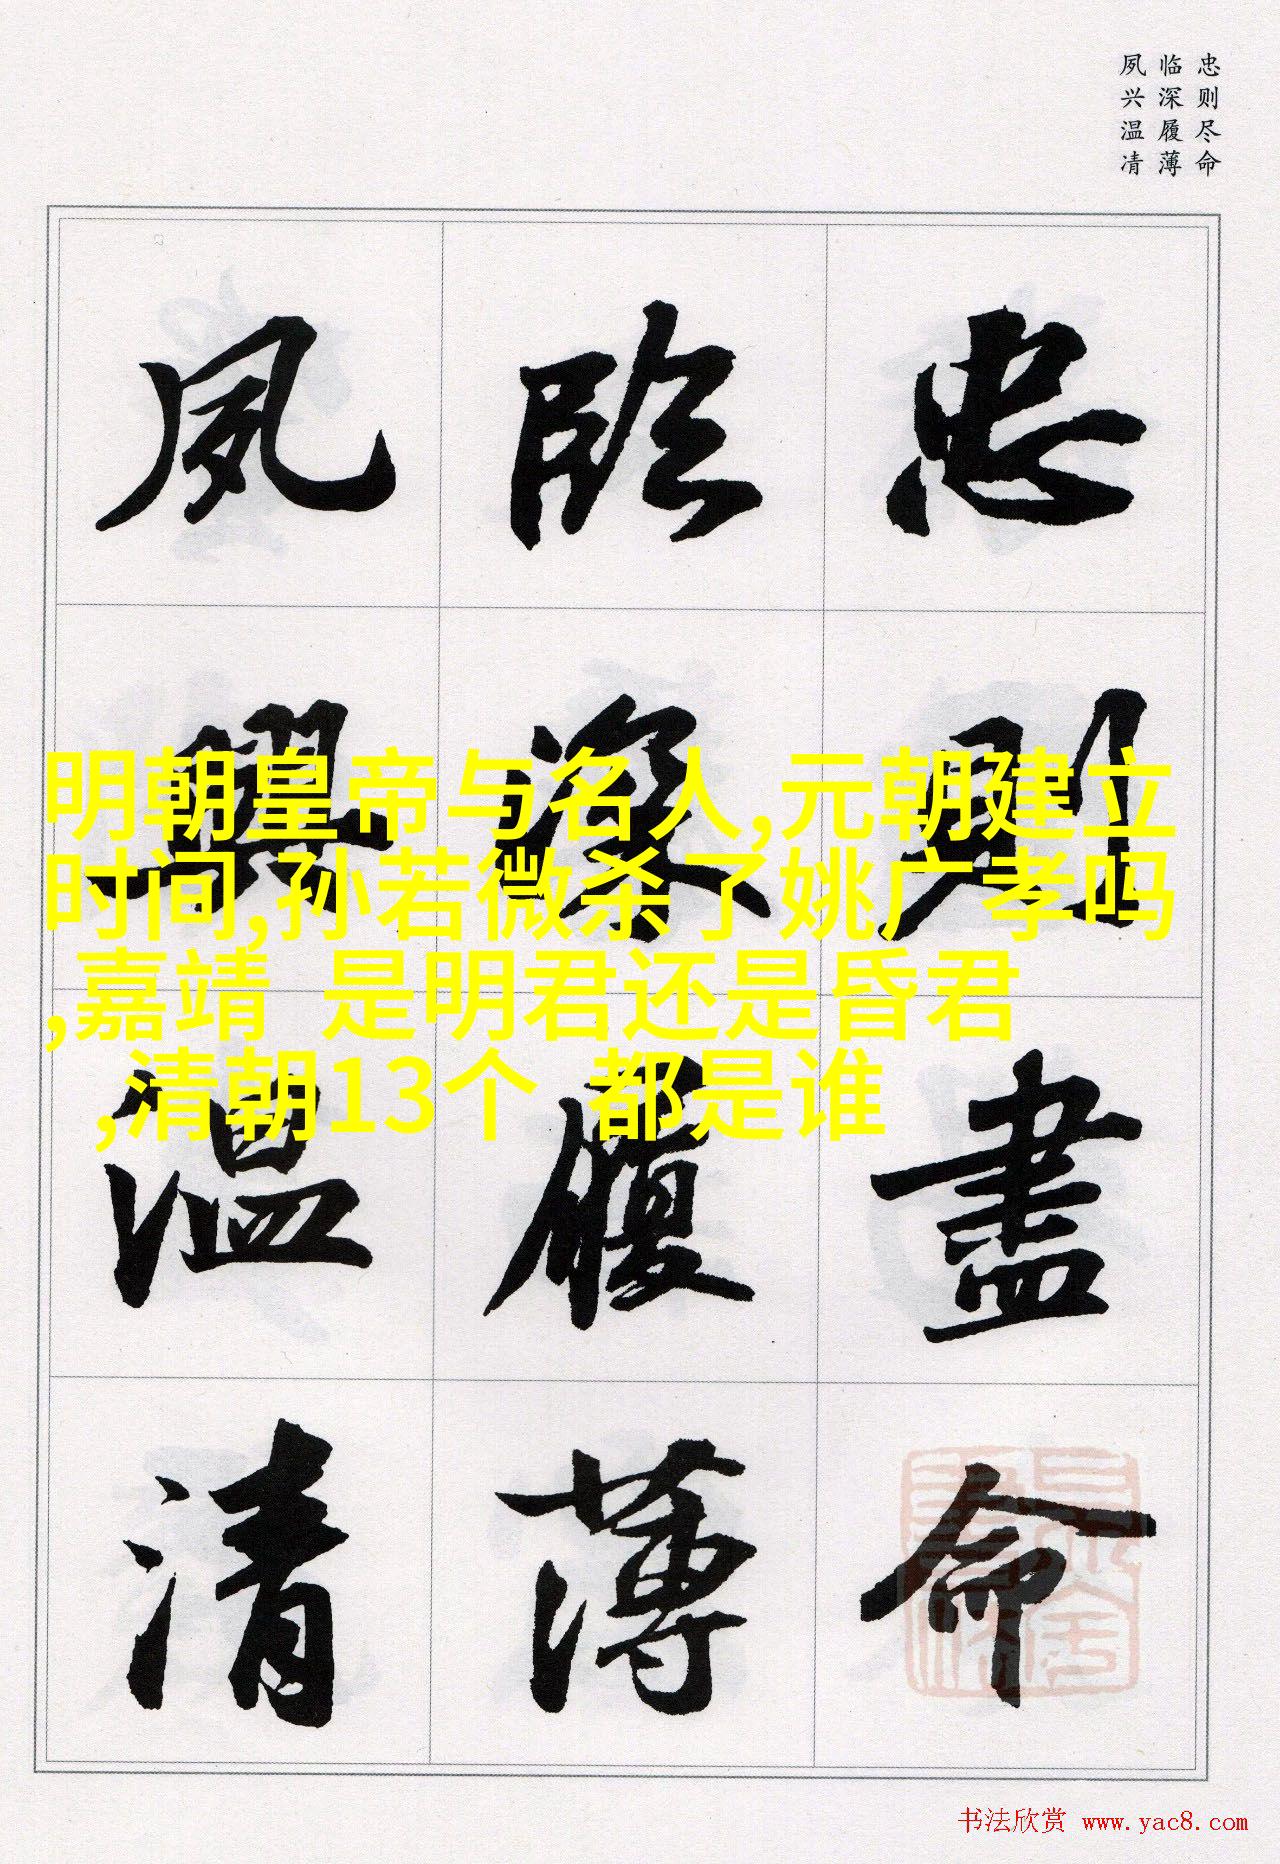 忠则尽命
临深履薄
夙兴温凊
忠則盡命
臨深履薄
夙興温清
明朝皇帝与名人,元朝建立
时间,孙若微杀了姚广孝吗
,嘉靖 是明君还是昏君
,清朝13个 都是谁
书法欣赏 www.yac8.com